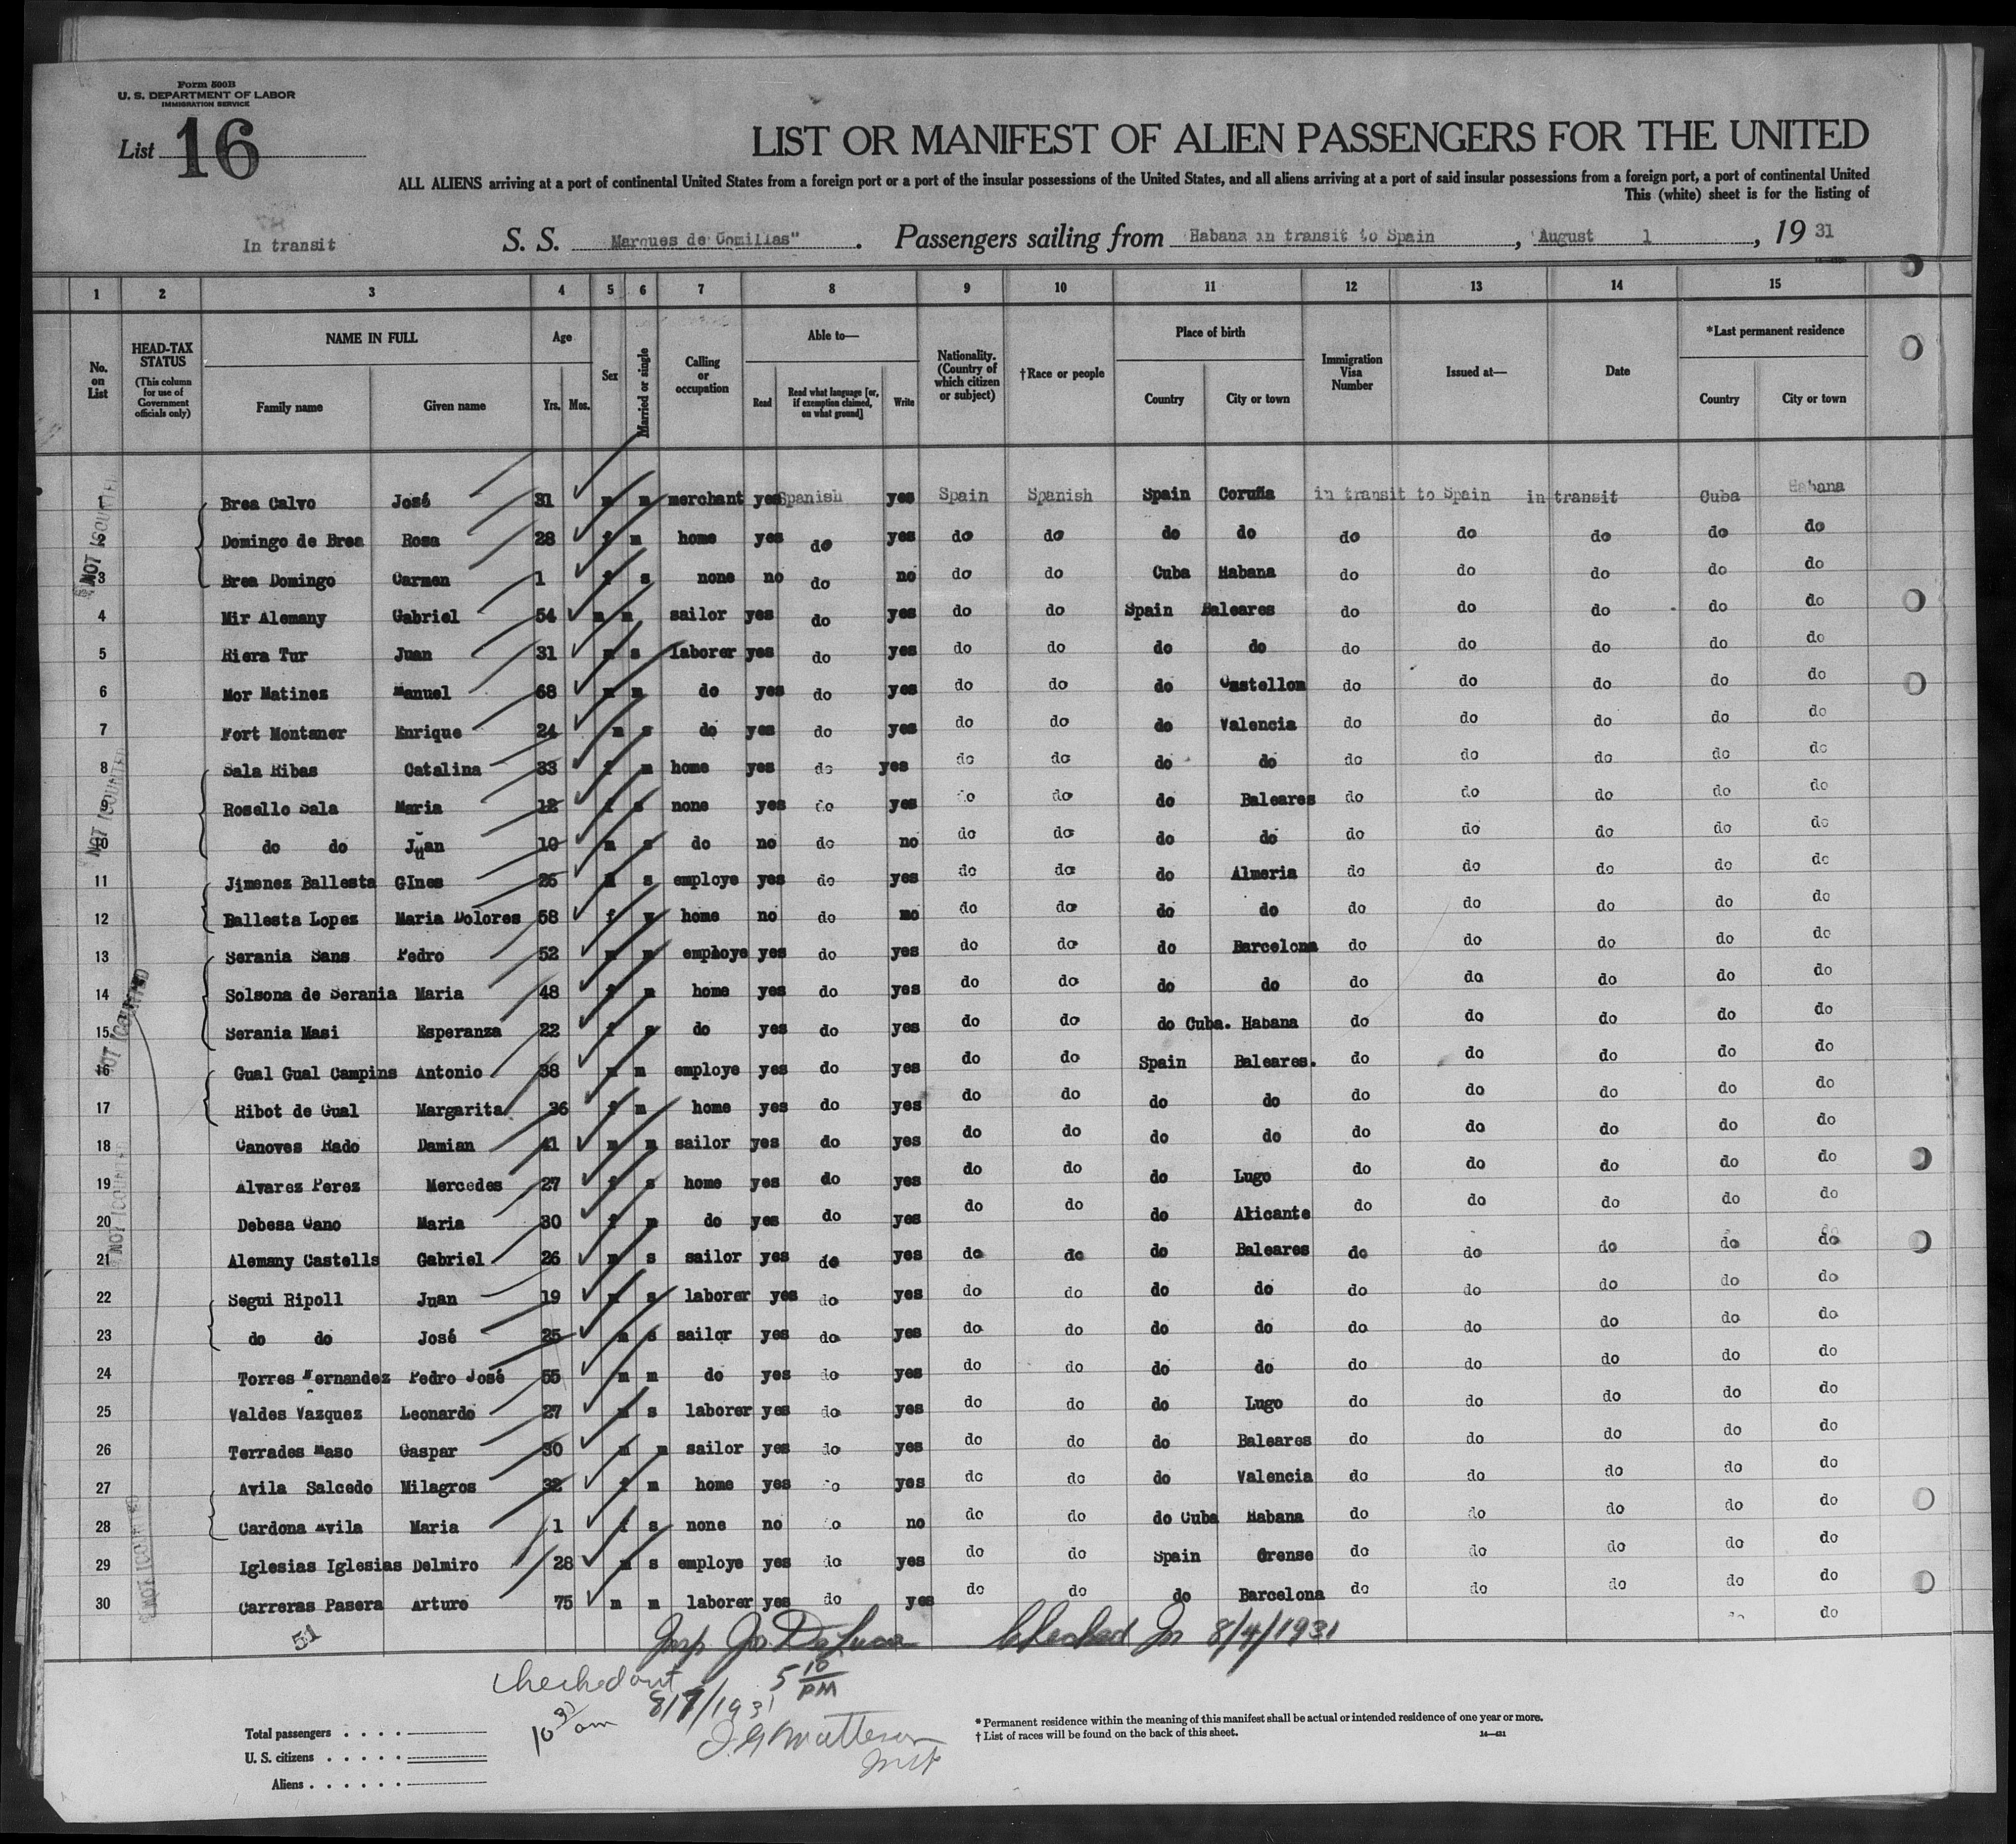 Form 500B
U. S. DEPARTMENT OF LABOR
IMMIGRATION SERVICE
List 16
LIST OR MANIFEST OF ALIEN PASSENGERS FOR THE UNITED
ALL ALIENS arriving at a port of continental United States from a foreign port or a port of the insular possessions of the United States, and all aliens arriving at a port of said insular possessions from a foreign port, a port of continental United
This (white) sheet is for the listing of
In transit S. S. Marques de Comillas" . Passengers sailing from Habana in transit to Spain , August 1 , 19 31
1 2 3 4 5 6 7 8 9 10 11 12 13 14 15
No. on List HEAD-TAX STATUS (This column for use of Government officials only) NAME IN FULL Family name Given name Age Yrs. Mos. Sex Married or single Calling or occupation Able to— Read Read what language [or, if exemption claimed, on what ground] Write Nationality. (Country of which citizen or subject) †Race or people Place of birth Country City or town Immigration Visa Number Issued at— Date *Last permanent residence Country City or town
1 Brea Calvo José 31 m m merchant yes Spanish yes Spain Spanish Spain Coruña in transit to Spain in transit Cuba Habana
2 Domingo de Brea Rosa 28 f m home yes do yes do do do do do do do do do
3 Brea Domingo Carmen 1 f s none no do no do do Cuba Habana do do do do do
4 Mir Alemany Gabriel 54 m m sailor yes do yes do do Spain Baleares do do do do do
5 Riera Tur Juan 31 m s laborer yes do yes do do do do do do do do do
6 Mor Matines Manuel 68 m m do yes do yes do do do Castellon do do do do do
7 Fort Montaner Enrique 24 m s do yes do yes do do do Valencia do do do do do
8 Sala Ribas Catalina 33 f m home yes do yes do do do do do do do do do
9 Rosello Sala Maria 12 f s none yes do yes do do do Baleares do do do do do
10 do do Juan 10 m s do no do no do do do do do do do do do
11 Jimenez Ballesta GInes 26 m s employe yes do yes do do do Almeria do do do do do
12 Ballesta Lopez Maria Dolores 58 f w home no do no do do do do do do do do do
13 Serania Sans Pedro 52 m m employe yes do yes do do do Barcelona do do do do do
14 Solsona de Serania Maria 48 f m home yes do yes do do do do do do do do do
15 Serania Masi Esperanza 22 f s do yes do yes do do do Cuba. Habana do do do do do
16 Gual Gual Campins Antonio 38 m m employe yes do yes do do Spain Baleares. do do do do do
17 Ribot de Gual Margarita 36 f m home yes do yes do do do do do do do do do
18 Canoves Rado Damian 41 m m sailor yes do yes do do do do do do do do do
19 Alvarez Perez Mercedes 27 f s home yes do yes do do do Lugo do do do do do
20 Debesa Cano Maria 30 f m do yes do yes do do do Alicante do do do do do
21 Alemany Castells Gabriel 26 m s sailor yes do yes do do do Baleares do do do do do
22 Segui Ripoll Juan 19 m s laborer yes do yes do do do do do do do do do
23 do do José 25 m s sailor yes do yes do do do do do do do do do
24 Torres Fernandez Pedro José 55 m m do yes do yes do do do do do do do do do
25 Valdes Vazquez Leonardo 27 m s laborer yes do yes do do do Lugo do do do do do
26 Terrades Maso Gaspar 30 m m sailor yes do yes do do do Baleares do do do do do
27 Avila Salcedo Milagros 32 f m home yes do yes do do do Valencia do do do do do
28 Cardona Avila Maria 1 f s none no do no do do do Cuba Habana do do do do do
29 Iglesias Iglesias Delmiro 28 m s employe yes do yes do do Spain Orense do do do do do
30 Carreras Pasera Arturo 75 m m laborer yes do yes do do do Barcelona do do do do do
51
Insp Jos DeLuca Checked In 8/4/1931
Checked out 8/7/1931 5 10 PM
10 30 am
Insp
Total passengers
U. S. citizens
Aliens
* Permanent residence within the meaning of this manifest shall be actual or intended residence of one year or more.
† List of races will be found on the back of this sheet. 14—431